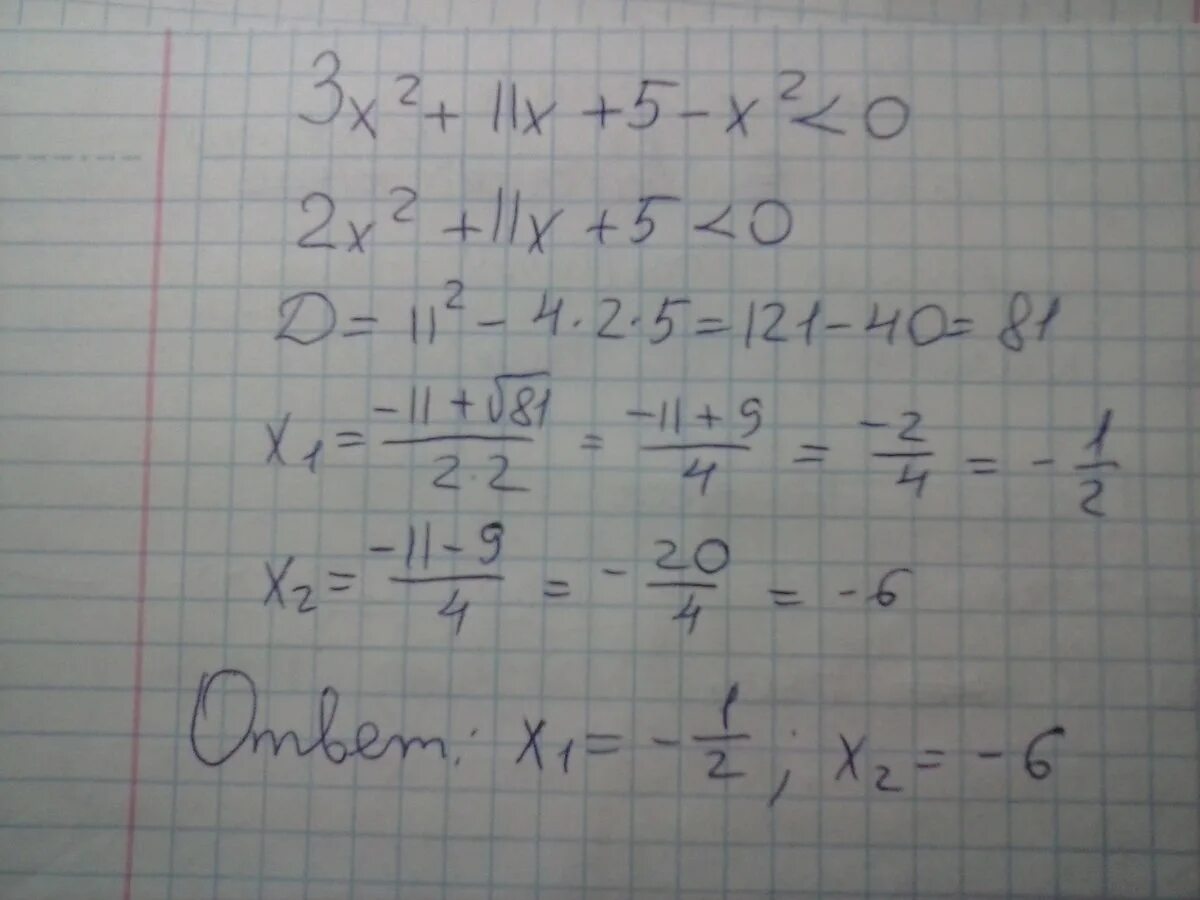 3x² + 11x + 5 - x² < 0
2x² + 11x + 5 < 0
D = 11² - 4·2·5 = 121 - 40 = 81
x₁ = (-11 + √81)/(2·2) = (-11 + 9)/4 = -2/4 = -1/2
x₂ = (-11 - 9)/4 = -20/4 = -6
Ответ: x₁ = -1/2; x₂ = -6